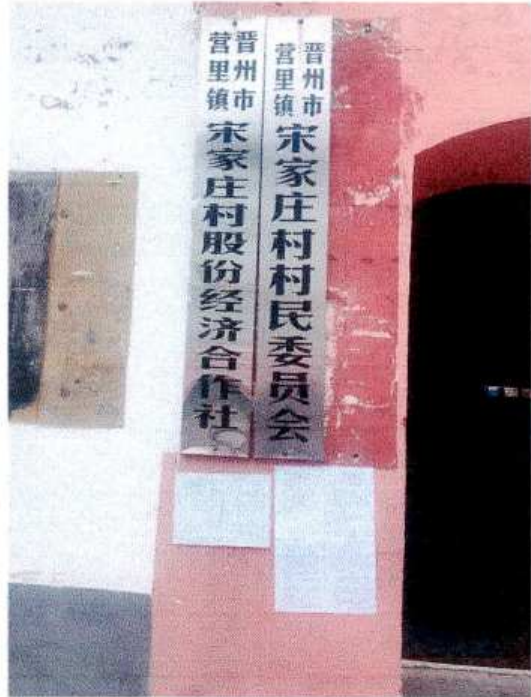 晋州市
营里镇
宋家庄村村民委员会
晋州市
营里镇
宋家庄村股份经济合作社